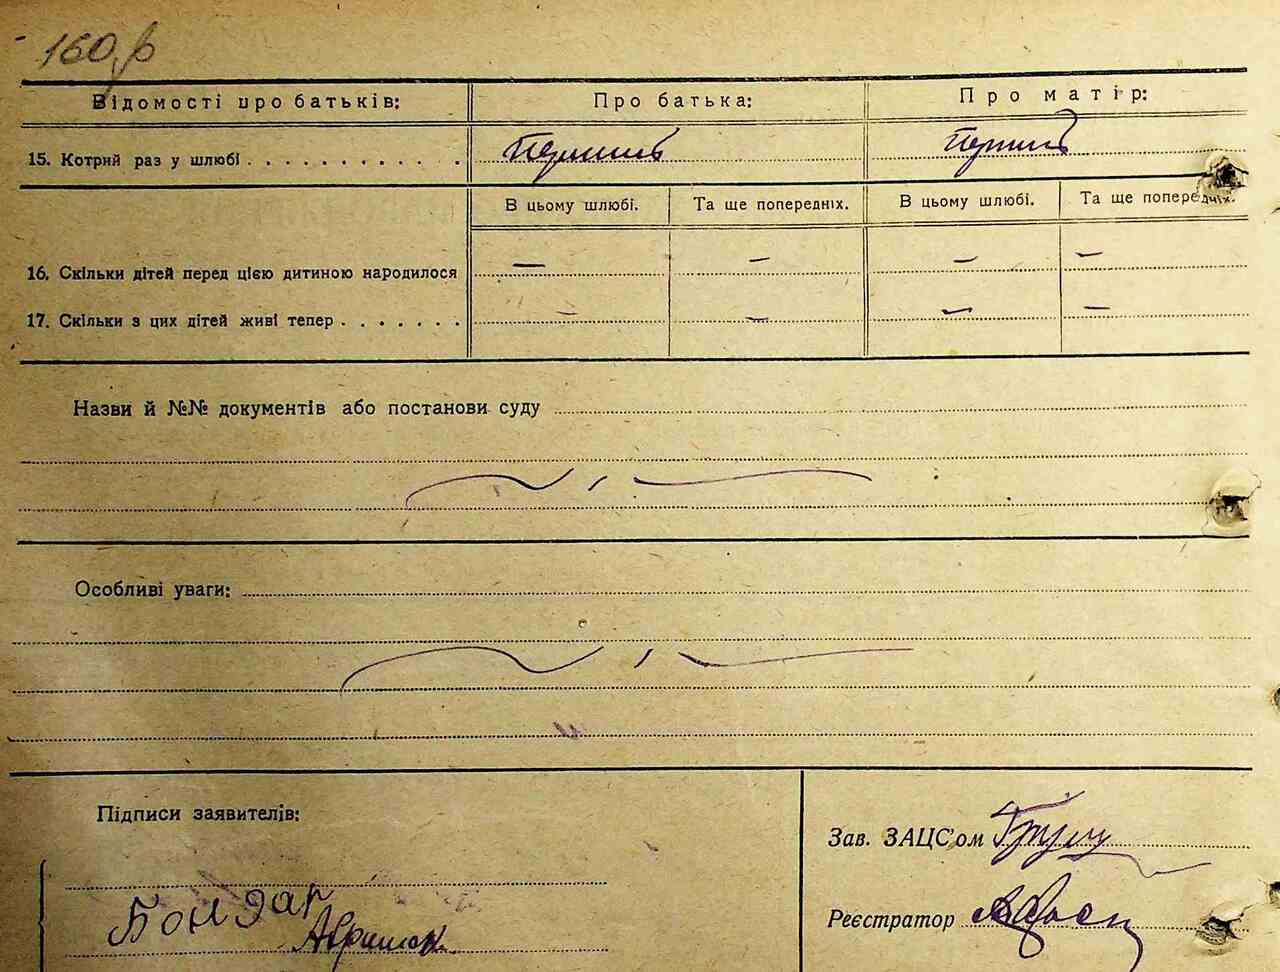 160
Відомості про батьків: Про батька: Про матір:
15. Котрий раз у шлюбі . . . . . . . . . . . . Перший Перший
В цьому шлюбі. Та ще попередніх. В цьому шлюбі. Та ще попередніх.
16. Скільки дітей перед цією дитиною народилося — — — —
17. Скільки з цих дітей живі тепер . . . . . . . — — — —
Назви й №№ документів або постанови суду
Особливі уваги:
Підписи заявителів:
Зав. ЗАЦС'ом
Бондар
Реєстратор